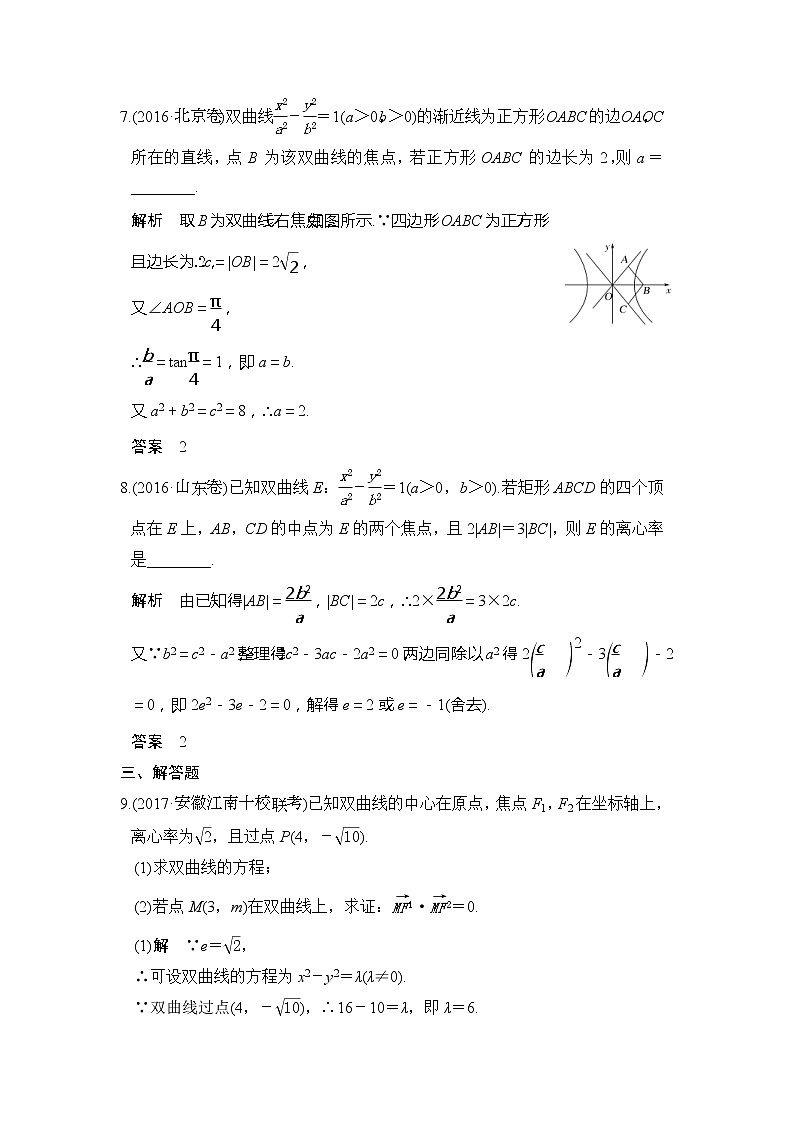 7.(2016·北京卷)双曲线x²/a²－y²/b²＝1(a＞0,b＞0)的渐近线为正方形OABC的边OA,OC
所在的直线，点 B 为该双曲线的焦点，若正方形 OABC 的边长为 2,则 a＝
________.
解析 取B为双曲线右焦点,如图所示.∵四边形OABC为正方形
且边长为2,∴c＝|OB|＝2√2，
又∠AOB＝π/4，
∴b/a＝tanπ/4＝1，即a＝b.
又a2＋b2＝c2＝8，∴a＝2.
答案 2
y
A
O
B
x
C
8.(2016·山东卷)已知双曲线E：x²/a²－y²/b²＝1(a＞0，b＞0).若矩形ABCD的四个顶
点在E上，AB，CD的中点为E的两个焦点，且2|AB|＝3|BC|，则E的离心率
是________.
解析 由已知得|AB|＝2b2/a，|BC|＝2c，∴2×2b2/a＝3×2c.
又∵b2＝c2－a2,整理得2c2－3ac－2a2＝0,两边同除以a2得2(c/a)2－3(c/a)－2
＝0，即2e2－3e－2＝0，解得e＝2或e＝－1(舍去).
答案 2
三、解答题
9.(2017·安徽江南十校联考)已知双曲线的中心在原点，焦点F₁，F₂在坐标轴上，
离心率为√2，且过点P(4，－√10).
(1)求双曲线的方程；
(2)若点M(3，m)在双曲线上，求证：MF1→·MF2→＝0.
(1)解 ∵e＝√2，
∴可设双曲线的方程为x²－y²＝λ(λ≠0).
∵双曲线过点(4，－√10)，∴16－10＝λ，即λ＝6.